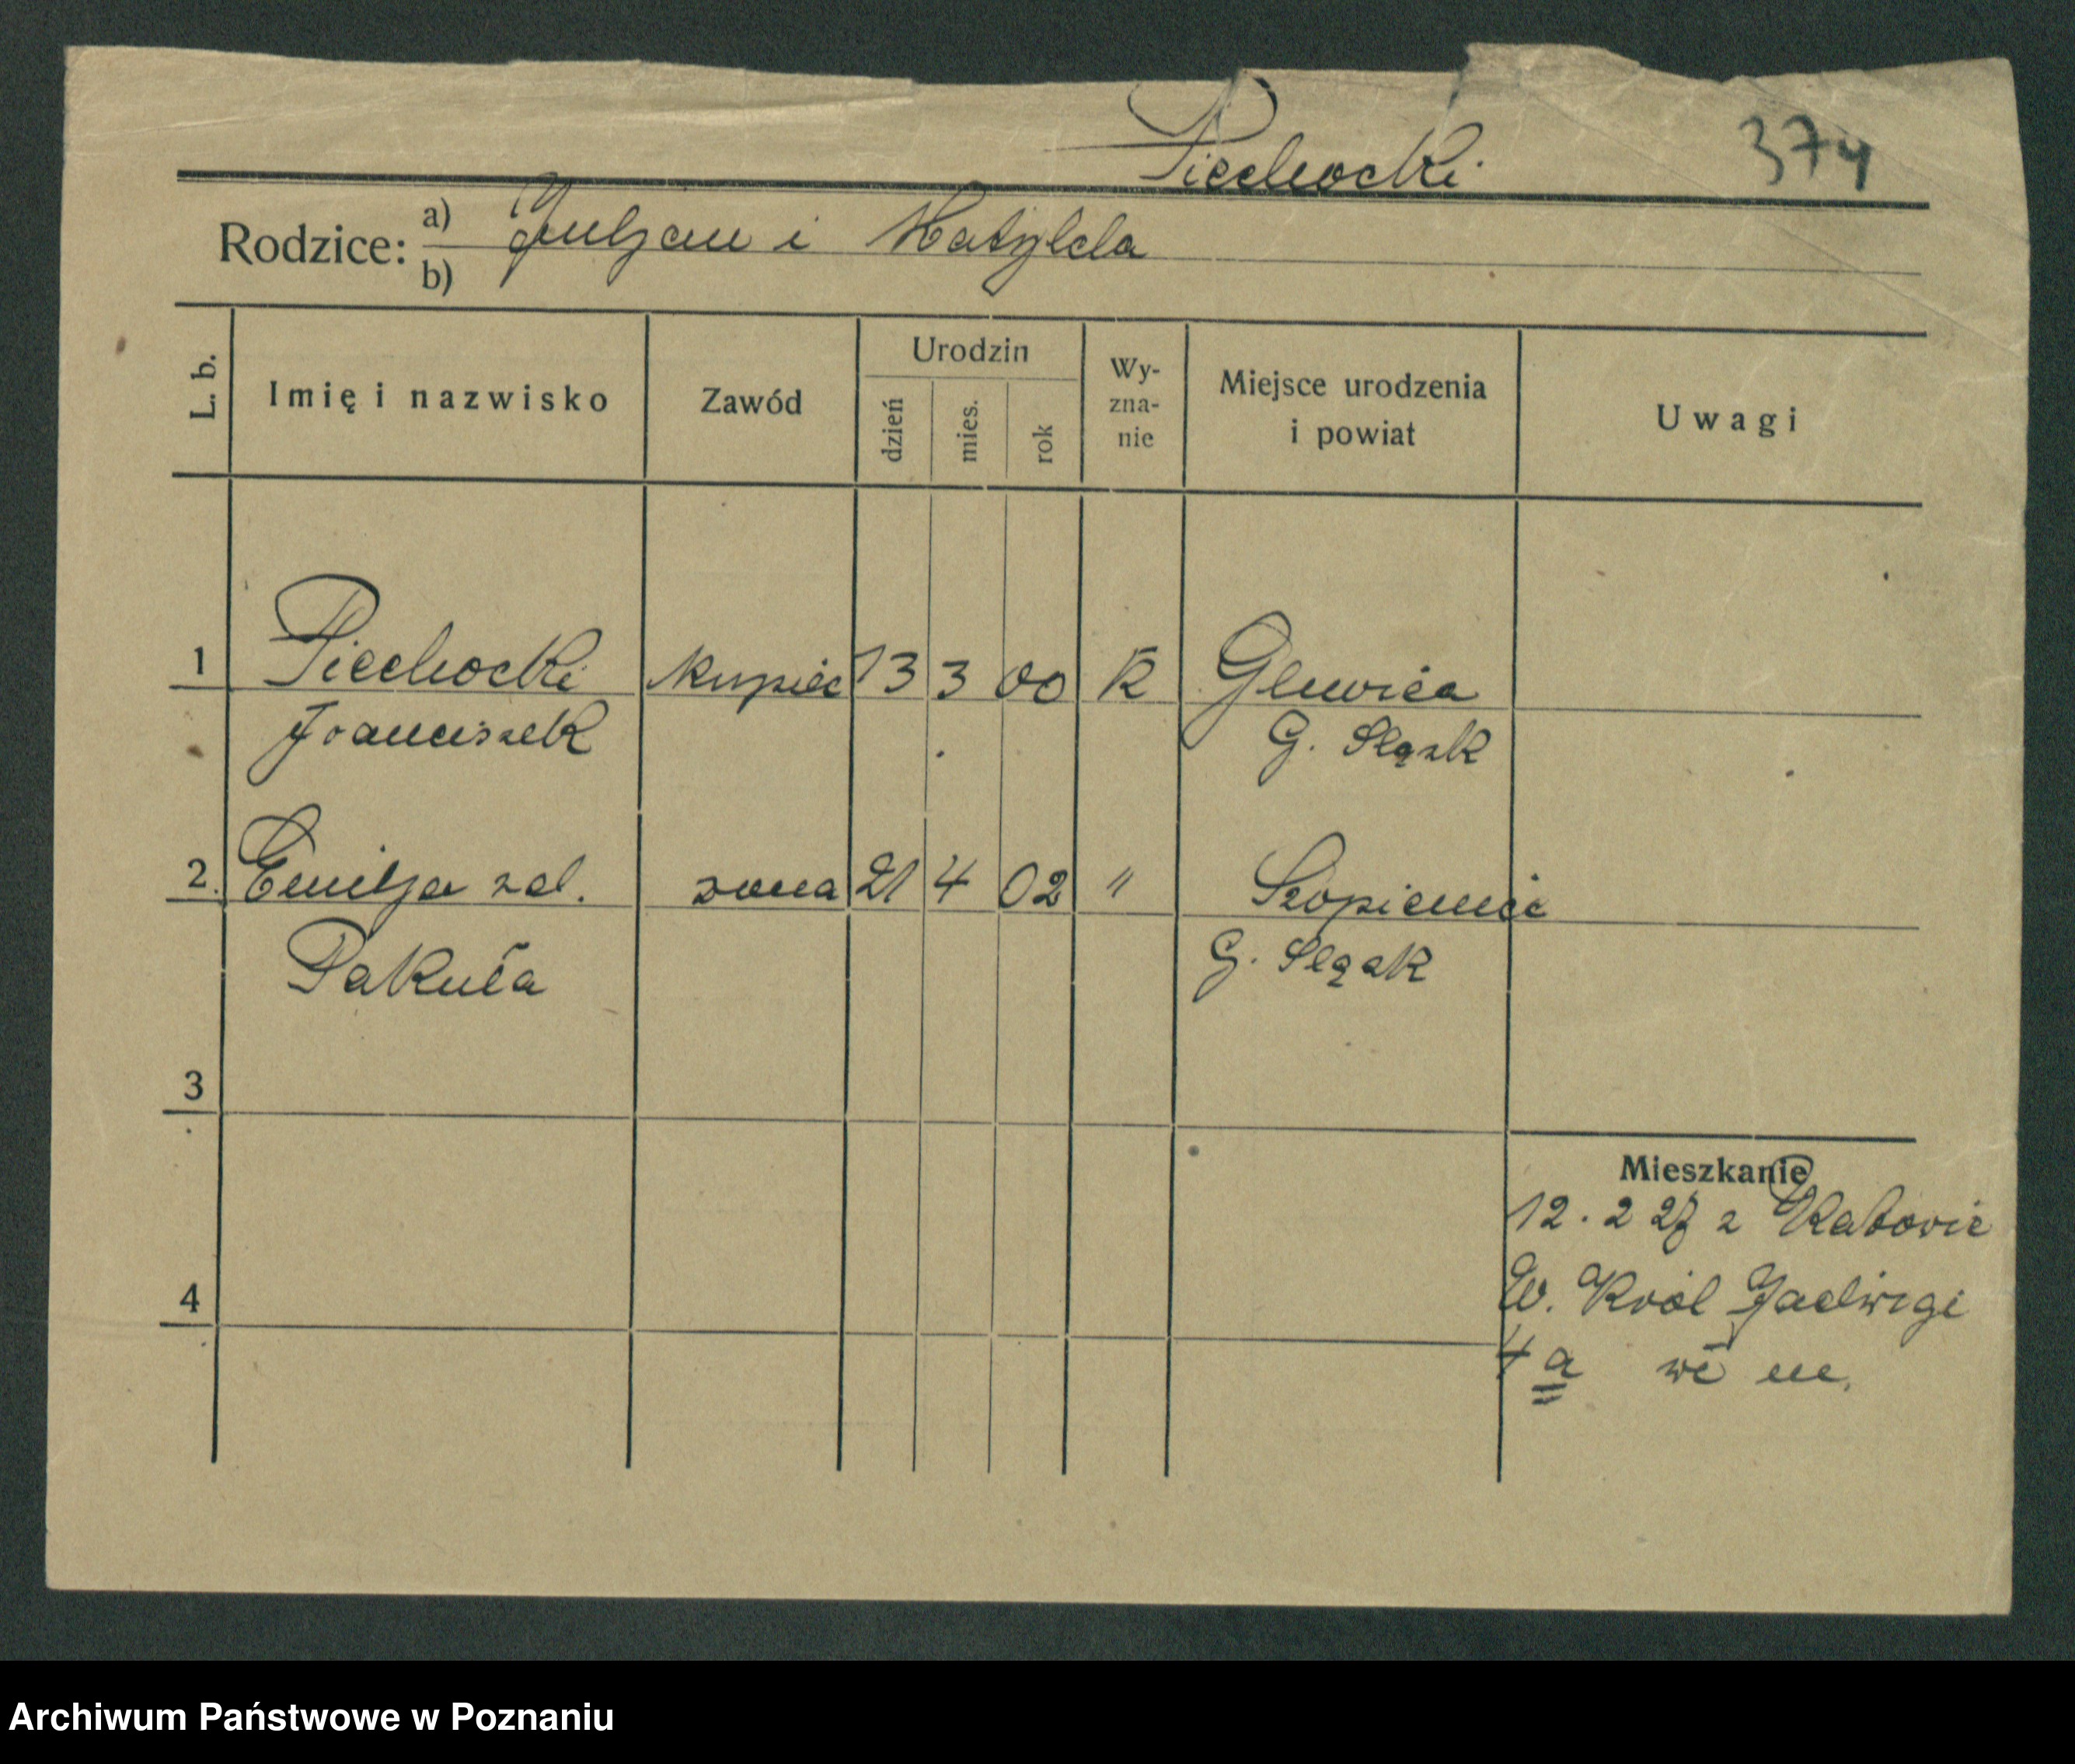 Piechocki 374
Rodzice: a) Juljan i Matylda
b)
L. b. Imię i nazwisko Zawód Urodzin dzień mies. rok Wy- zna- nie Miejsce urodzenia i powiat Uwagi
1 Piechocki kupiec 13 3 00 K Gliwica
Franciszek G. Sląsk
2. Emilja zal. zona 21 4 02 " Szopienice
Pakuła G. Sląsk
3
Mieszkanie
12. 2 27 z Katowic
4 W. Król Jadwigi
4 a
Archiwum Państwowe w Poznaniu